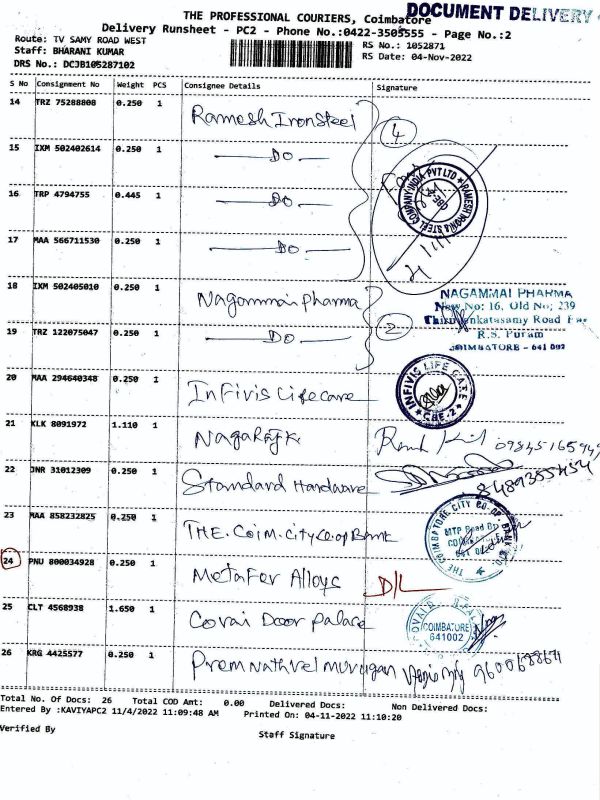 THE PROFESSIONAL COURIERS, Coimbatore
DOCUMENT DELIVERY
Delivery Runsheet - PC2 - Phone No.:0422-3505555 - Page No.:2
Route: TV SAMY ROAD WEST
RS No.: 1052871
Staff: BHARANI KUMAR
RS Date: 04-Nov-2022
DRS No.: DCJB105287102
S No Consignment No Weight PCS Consignee Details Signature
14 TRZ 75288808 0.250 1 Ramesh Iron Steel
4
15 IXM 502402614 0.250 1 — DO —
16 TRP 4794755 0.445 1 — DO —
RAMESH IRON & STEEL COMPANY INDIA PVT LTD
17 MAA 566711530 0.250 1 — DO —
18 IXM 502405010 0.250 1 Nagammai Pharma
2
NAGAMMAI PHARMA
New No: 16, Old No; 239
Thiruvenkatasamy Road
R.S. Puram
COIMBATORE - 641 002
19 TRZ 122075047 0.250 1 — DO —
20 MAA 294640348 0.250 1 Infivis Lifecare
INFIVIS LIFE CARE
CBE-2
21 KLK 8091972 1.110 1 Nagaraj K
22 JNR 31012309 0.250 1 Standard Hardware
8489355454
23 MAA 858232825 0.250 1 THE. Coim. City Co.op Bank
THE COIMBATORE CITY CO-OP. BANK
MTP Road
24 PNU 800034928 0.250 1 Metafer Alloys D/L
25 CLT 4568938 1.650 1 Covai Door Palace
COIMBATORE
641002
26 KRG 4425577 0.250 1 Premnathvel murugan
Total No. Of Docs: 26 Total COD Amt: 0.00 Delivered Docs: Non Delivered Docs:
Entered By :KAVIYAPC2 11/4/2022 11:09:48 AM Printed On: 04-11-2022 11:10:20
Verified By
Staff Signature